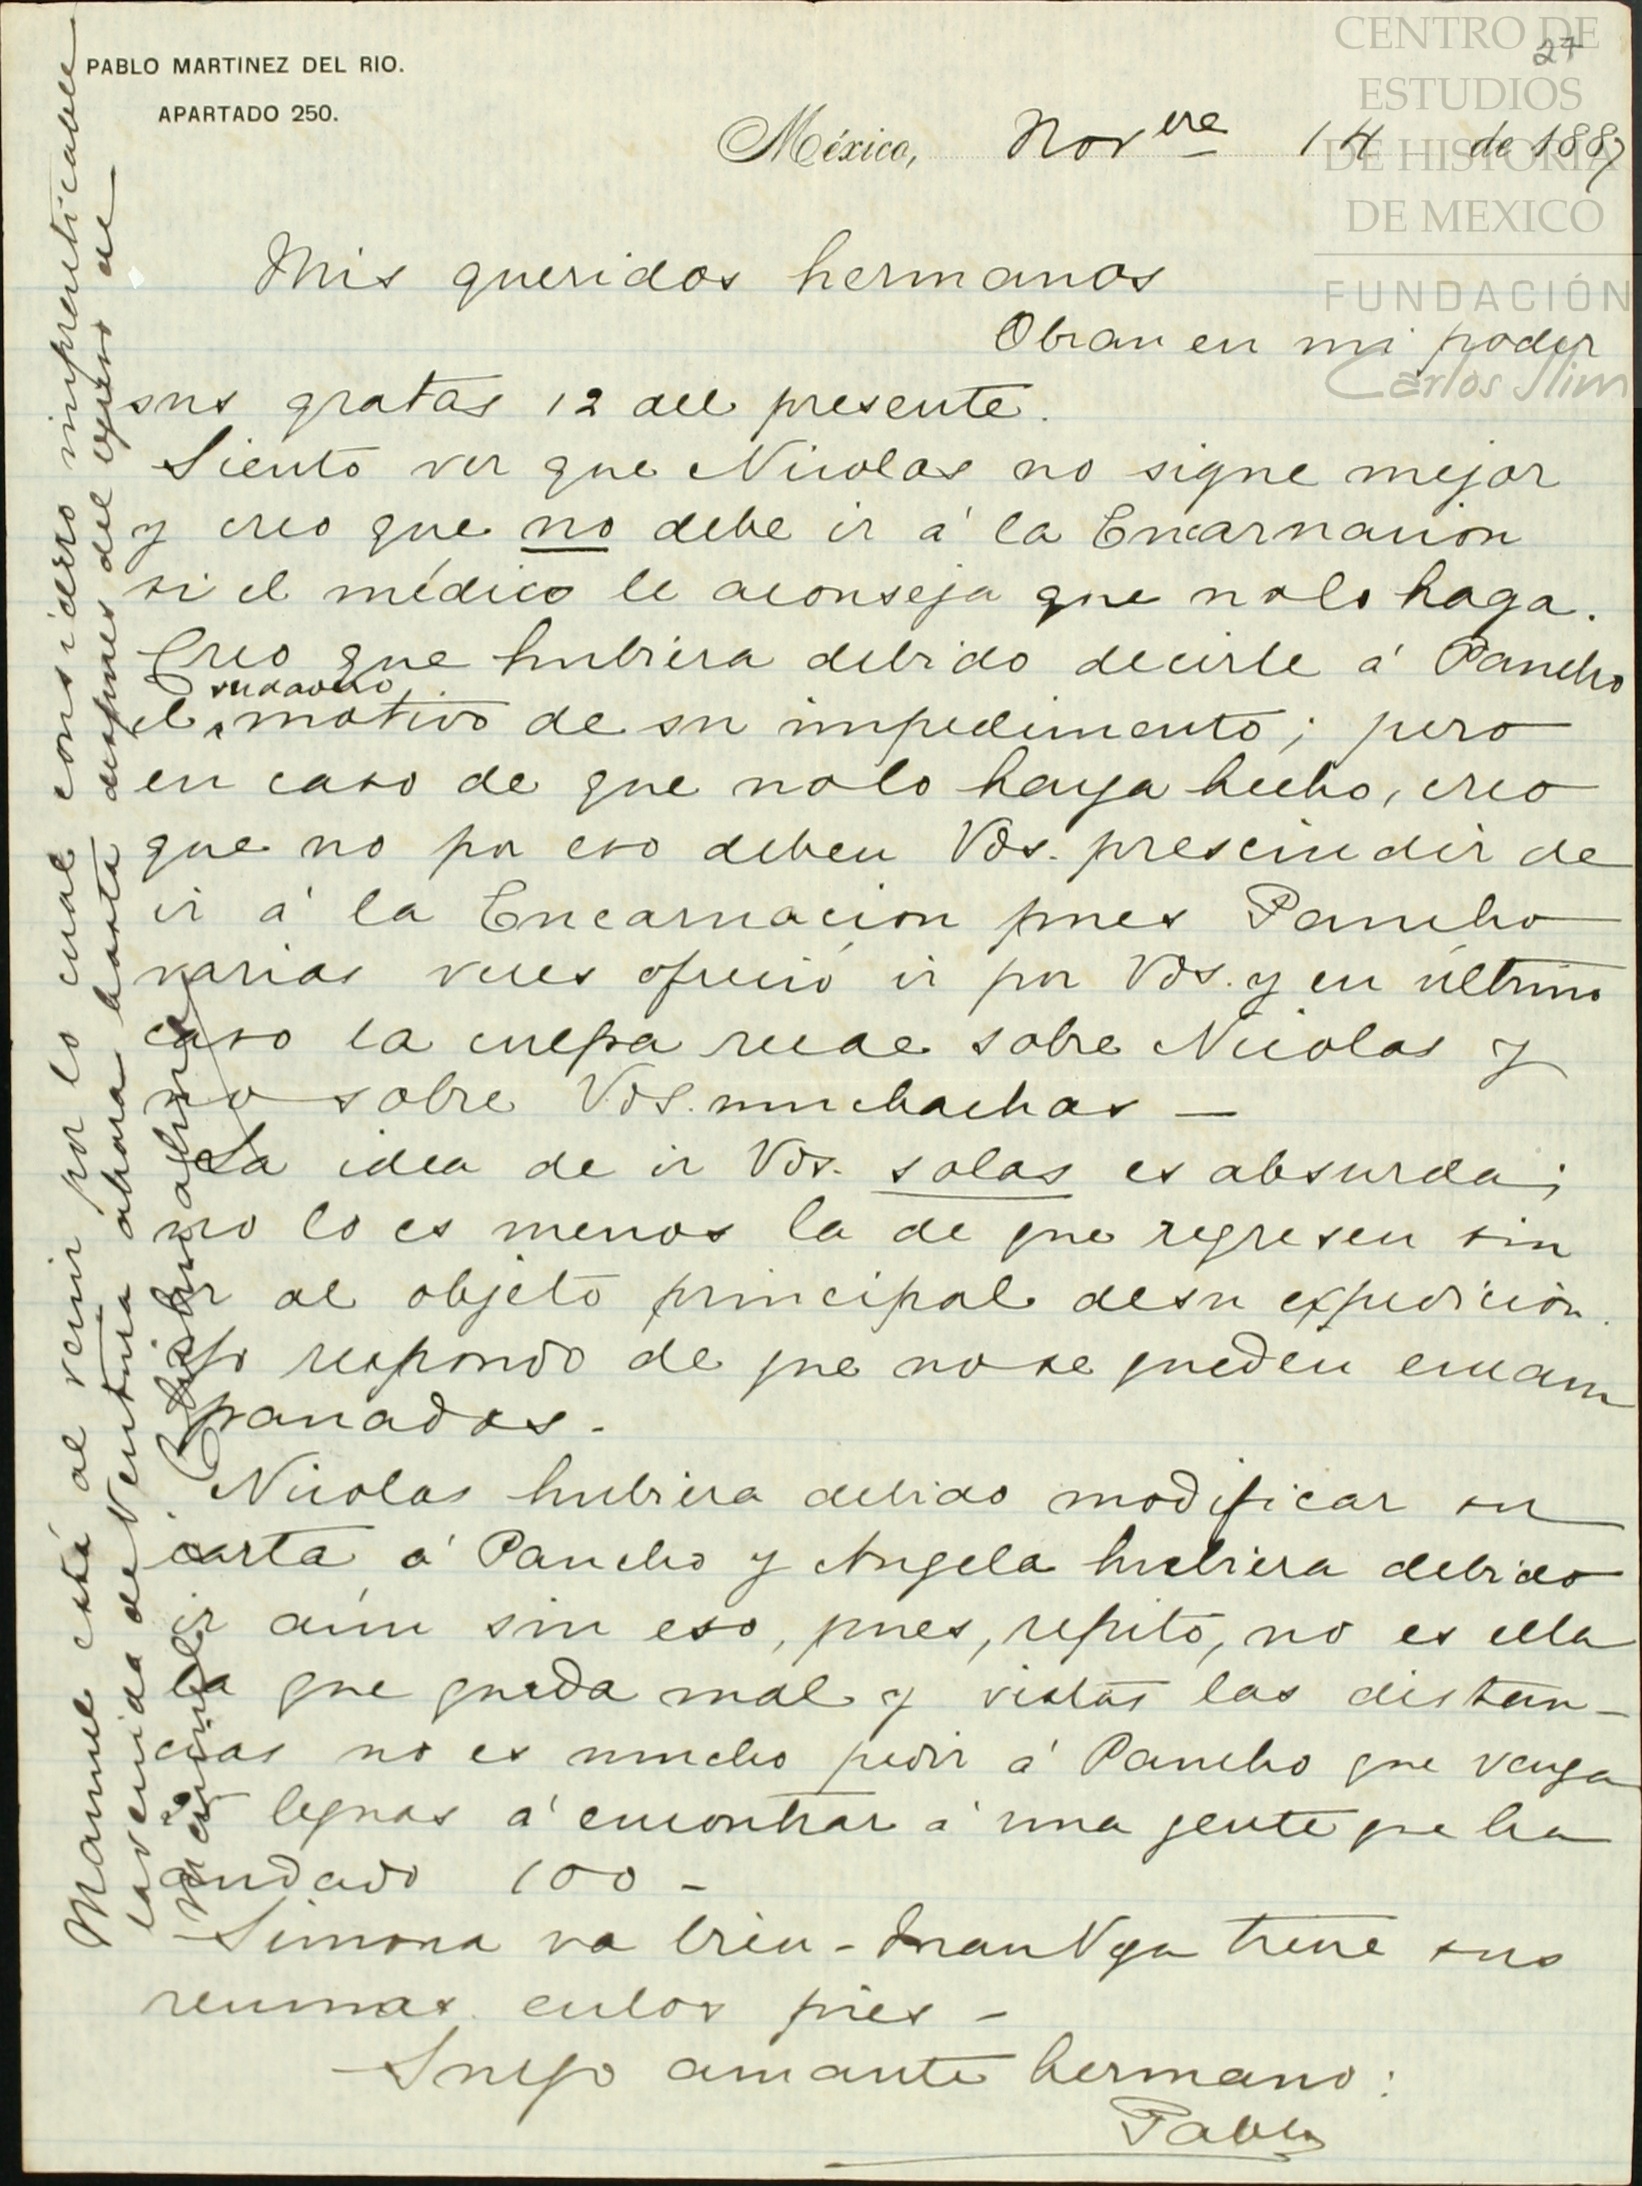 PABLO MARTINEZ DEL RIO.
APARTADO 250.
27
CENTRO DE
ESTUDIOS
DE HISTORIA
DE MEXICO
FUNDACIÓN
Carlos Slim
México, Novbre 14 de 1887
Mis queridos hermanos
Obran en mi poder
sus gratas 12 del presente.
Siento ver que Nicolas no sigue mejor
y creo que no debe ir á la Encarnacion
si el médico le aconseja que no lo haga.
Creo que hubiera debido decirle á Pancho
verdadero
el motivo de su impedimento; pero
en caso de que no lo haya hecho, creo
que no por eso deben Vds. prescindir de
ir á la Encarnacion pues Pancho
varias veces ofreció ir por Vds. y en último
caso la culpa recae sobre Nicolas y
no sobre Vds. muchachas —
La idea de ir Vds. solas es absurda;
no lo es menos la de que regresen sin
ir al objeto principal de su expedicion.
Yo respondo de que no se queden encam
panados.
Nicolas hubiera debido modificar su
carta á Pancho y Angela hubiera debido
ir aún sin eso, pues, repito, no es ella
la que queda mal y vistas las distan-
cias no es mucho pedir á Pancho que venga
leguas á encontrar á una gente que ha
andado 100 -
Simona va bien - tiene sus
reumas en los pies -
Suyo amante hermano:
Pablo
Manuel está al venir por lo cual considero impracticable
la venida de Ventura ahora hasta despues del de